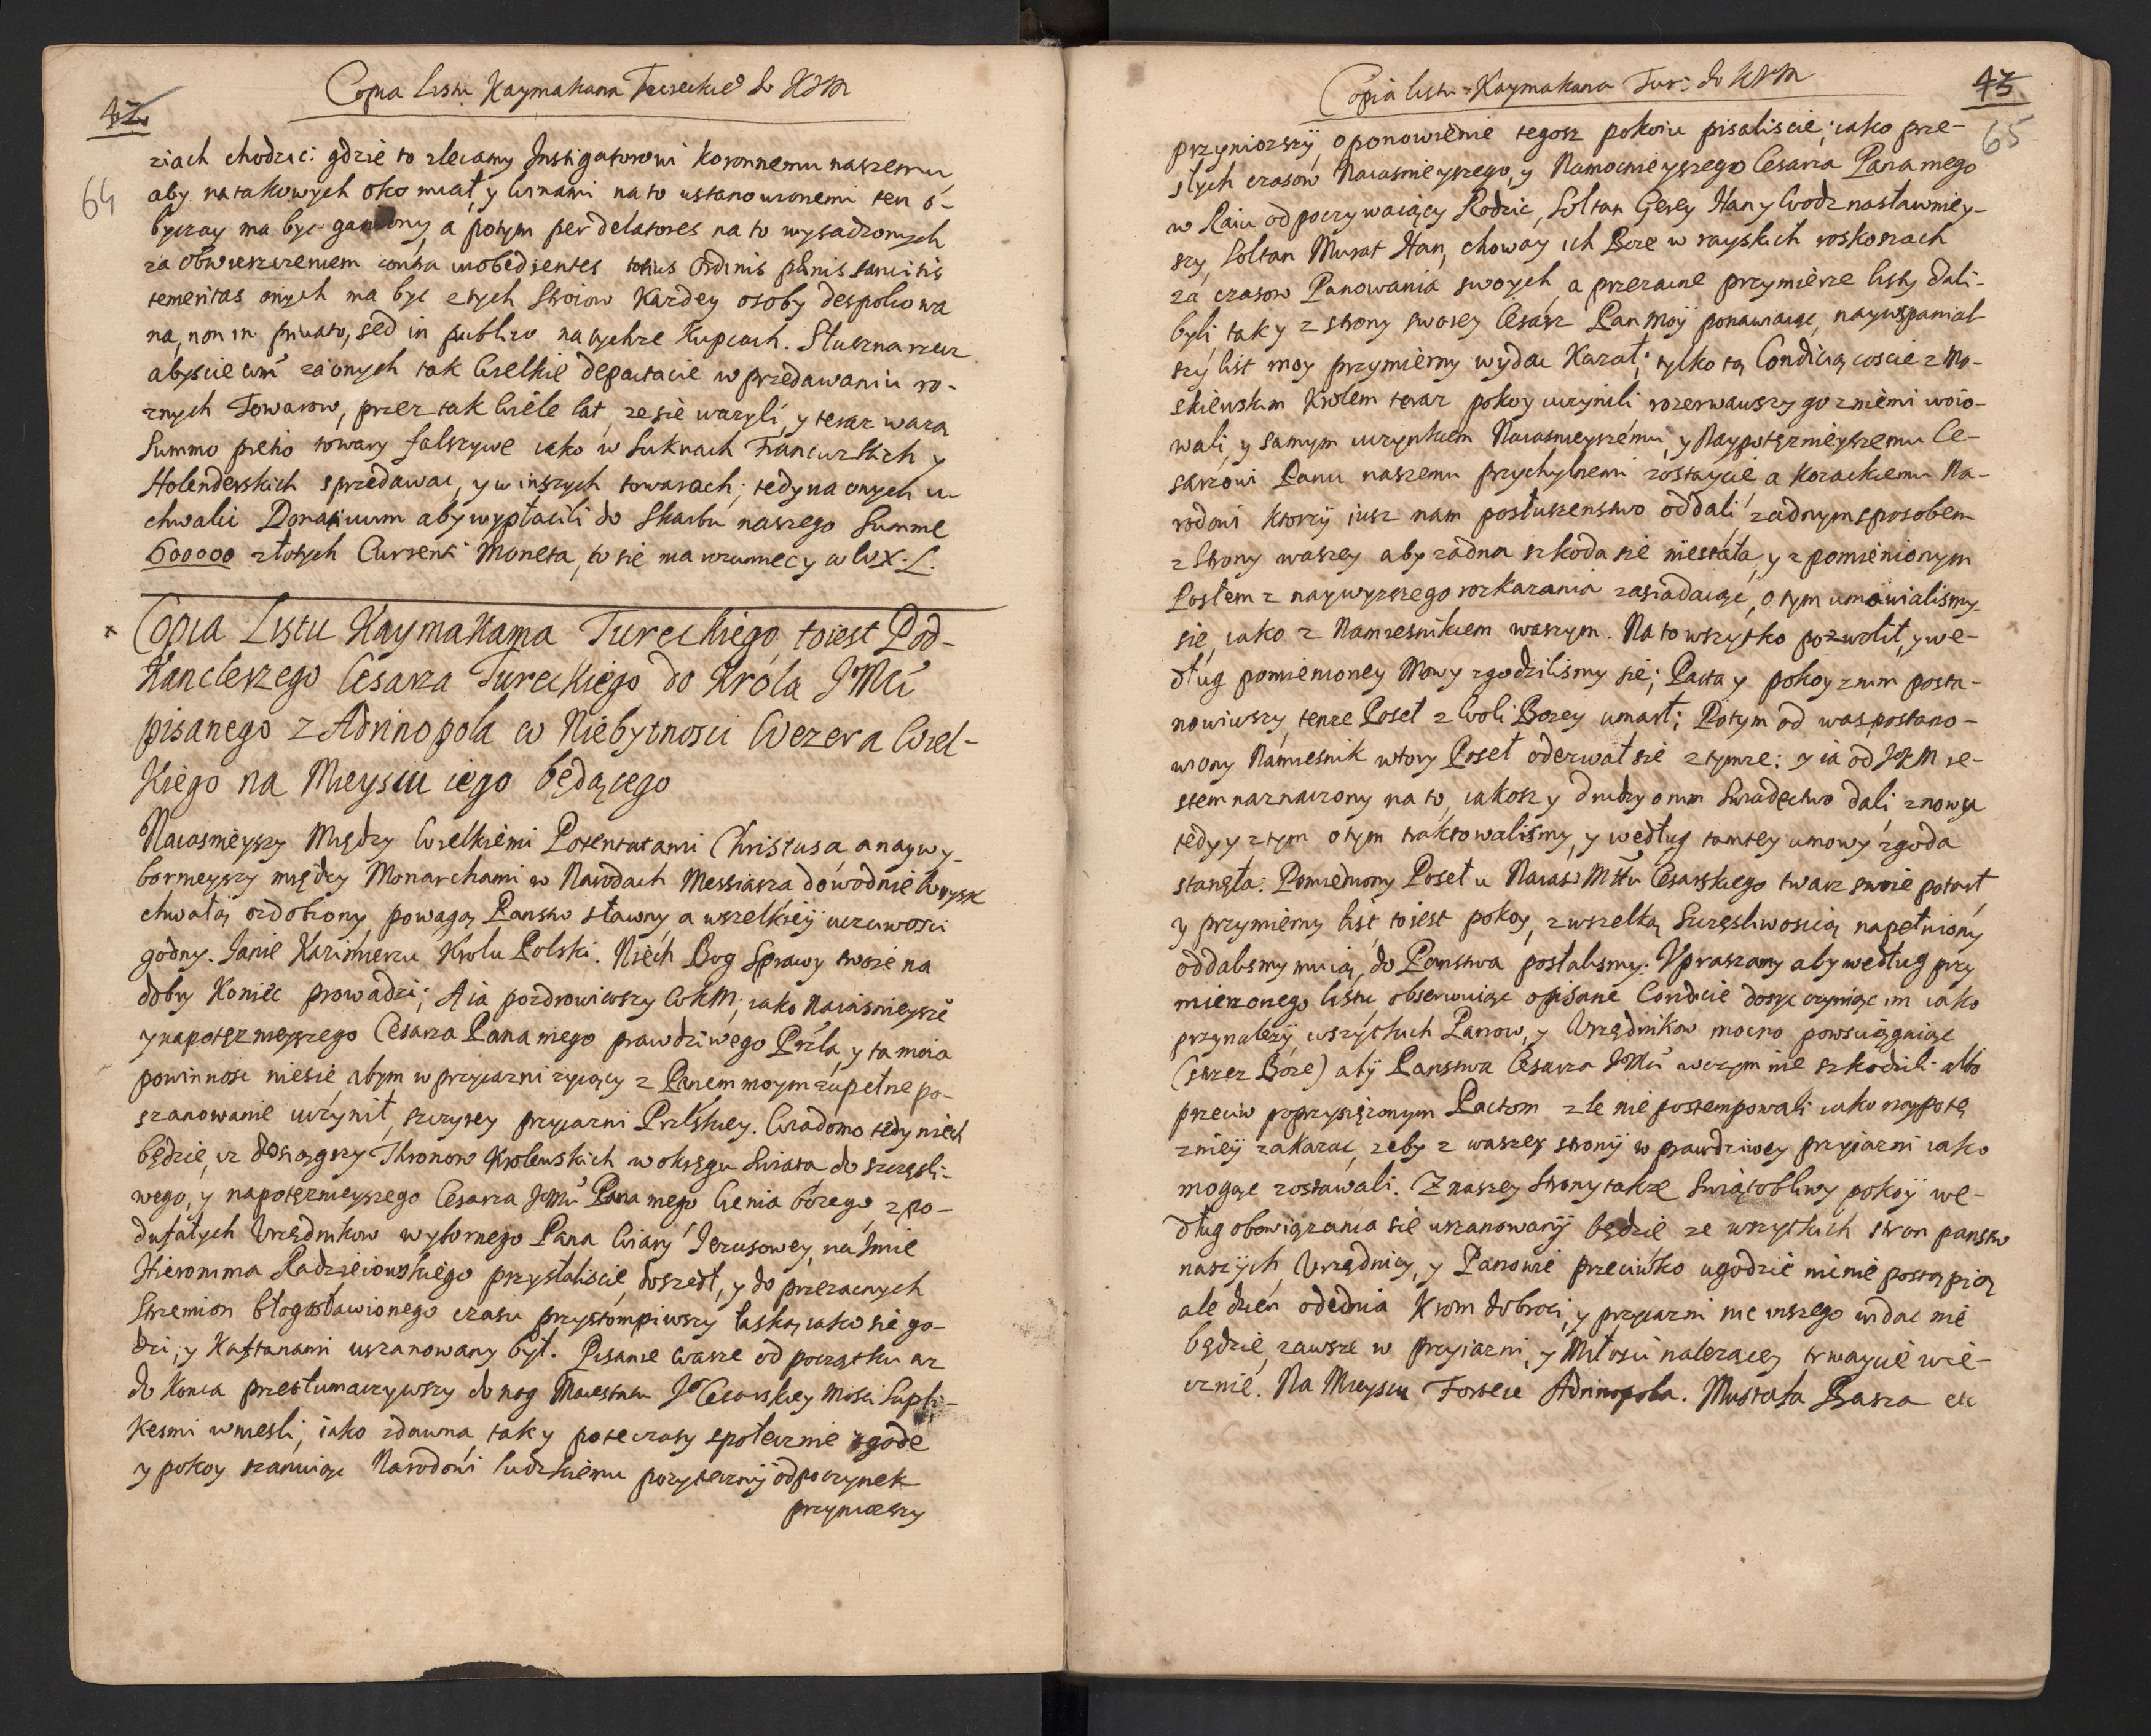 Copia Listu Kaymakana Tureckieº do KJM
42
64
ziach chodzić: gdzie to zlecamy Instigatorowi koronnemu naszemu,
aby na takowych oko miał, y winami na to ustanowionemi ten o-
byczay ma być ganiony, a potym per delatores na to wysadzonych
za obwieszczeniem contra inobedientes totius Ordinis pænis sancitis
temeritas onych ma byc z tych Stroiow Kazdey osoby despoliowa
na, non in privato, sed in publico na tychze Kupcach. Słuszna rzecz
abyście wm̃ za onych tak Wielkie depactacie w przedawaniu ro-
znych Towarow, przez tak wiele lat, ze sie wazyli, y teraz waza
Summo pretio towary falszywe iako w Suknach Francuzkich y
Holenderskich sprzedawac, y w inszych towarach; tedy na onych u-
chwalic Donativum aby wypłacili do Skarbu naszego Summe
600000 złotych Currenti Moneta, to sie ma rozumiec y w W.X.L.
x Copia Listu Kaymakama Tureckiego, to iest Pod-
kanclerzego Cesarza Tureckiego do Króla JMci
pisanego z Adrinopola w Niebytnosci Wezera Wiel-
kiego na Mieyscu iego będącego
Naiasnieyszy Między Wielkiemi Potentatami Christusa a naywy-
bornieyszy między Monarchami w Narodach Messiasza dowodnie wszysk
chwałą ozdobiony, powagą Panstw sławny, a wszelkiéy uczciwosci
godny. Janie Kazimierzu Krolu Polski. Niech Bog Sprawy twoie na
dobry Koniec prowadzi; A ia pozdrowiwszy WKM; iako Naiásnieysze
y napotęznieyszego Cesarza Pana mego prawdziwego Przla, y ta moia
powinnosc niesie, abym w przyiazni zyiący z Panem moym zupełne po-
szanowanie uczynił, szczyrey przyiazni Przlskiey. Wiadomo tedy niech
będzie, iz dosiągszy Thronow Krolewskich w okręgu Swiata do szczęśli-
wego, y napotęznieyszego Cesarza JeMci Pana mego Cienia bozego z po-
dufałych Urzędnikow wybornego Pana Wiary Jezusowey, na Imie
Hieronima Radzieiowskiego przysłaliscie, doszedł, y do przezacnych
Strzemion błogosławionego czasu przystompiwszy łaską iako sie go-
dzi, y Kaftanami uszanowany był. Pisanie Wasze od początku az
do Konca przetłumaczywszy do nog Maiestatu Jº Cesarskiey Mosci Supli-
kesmi wniesli, iako zdawna, tak y po te czasy społecznie zgode
y pokoy szanuiąc Narodowi ludzkiemu pozyteczny odpoczynek
przyniozszy
Copia listu Kaymakana Tur: do KJM
43
65
przyniozszy, o ponowienie tegosz pokoiu pisaliscie; iako prze-
szłych czasow Naiasnieyszego, y Namocnieyszego Cesarza Pana mego
w Raiu odpoczywaiący Rodzic, Soltan Gerey Han y Wodz nasławniey-
szy, Soltan Murat Han, choway ich Boze w rayskich roskoszach
za czasow Panowania swoych, a przezacne przymierze listy dali-
byli, tak y z strony swoiey Cesarz Pan moÿ ponawiaiąc, naywspanial
szÿ list moy przymierny wydac Kazał; tylko tą Condicią coscie z Mo-
skiewskim Krolem teraz pokoy uczynili rozerwawszy go z niemi woio-
wali, y samym uczynkiem Naiasnieyszému, y Naypotęznieyszemu Ce-
sarzowi Panu naszemu przychylnemi zostaycie a kozackiemu Na-
rodowi ktorzÿ iusz nam posłuszenstwo oddali, zadnym sposobem
z Strony waszey aby zadna szkoda sie niestała, y z pomienionym
Posłem z naywyzszego rozkazania zasiadaiąc, o tym umowialismy
sie, iako z Namiesnikiem waszym. Na to wszytko pozwolił, y we-
dług pomienioney Mowy zgodzilismy sie; Pacta y pokoy z nim posta-
nowiwszy, tenze Poseł z Woli Bozey umarł; Potym od was postano-
wiony Námiesnik wtory Poseł oderwał sie z tymze; y ia od JKM ie-
stem naznaczony na to, iakosz y drudzy o nim Swiadectwo dali, znowu
tedy y z tym o tym traktowalismy, y według tamtey umowy zgoda
stanęła. Pomieniony Poseł u Naias Mstu Cesarskiego twarz swoie potarł,
y przymierny list, to iest pokoy, z wszelką Szczęsliwoscią napełniony
oddalismy mu ią, do Panstwa posłalismy. Upraszamy aby według przy
mierzonego listu, obserwuiąc opisane Condicie dosyc czyniąc im iako
przynalezÿ wszytkich Panow, y Urzędnikow mocno powsciągaiąc
(strzez Boze) abÿ Panstwa Cesarza JeMci w czym nie szkodzili albo
przeciw poprzysięzonym Pactom zle nie postempowali iako naypotę
zniéÿ zakazac, zeby z waszey stronÿ w prawdziwey przyiazni iako
mogąc zostawali. Z naszey Strony takze Swiątobliwy pokoÿ we-
dług obowiązania sie uszanowanÿ będzie ze wszytkich stron panstw
naszÿch, Urzędnicy, y Panowie przeciwko ugodzie nic nie postąpią
ale dzien odednia Krom dobroci, y przyiazni nic inszego widac nie
będzie, zawsze w przyiazni, y Miłosci nalezącey trwaycie wie-
cznie. Na Mieyscu Fortece Adrinopola. Mustafa Basza etc